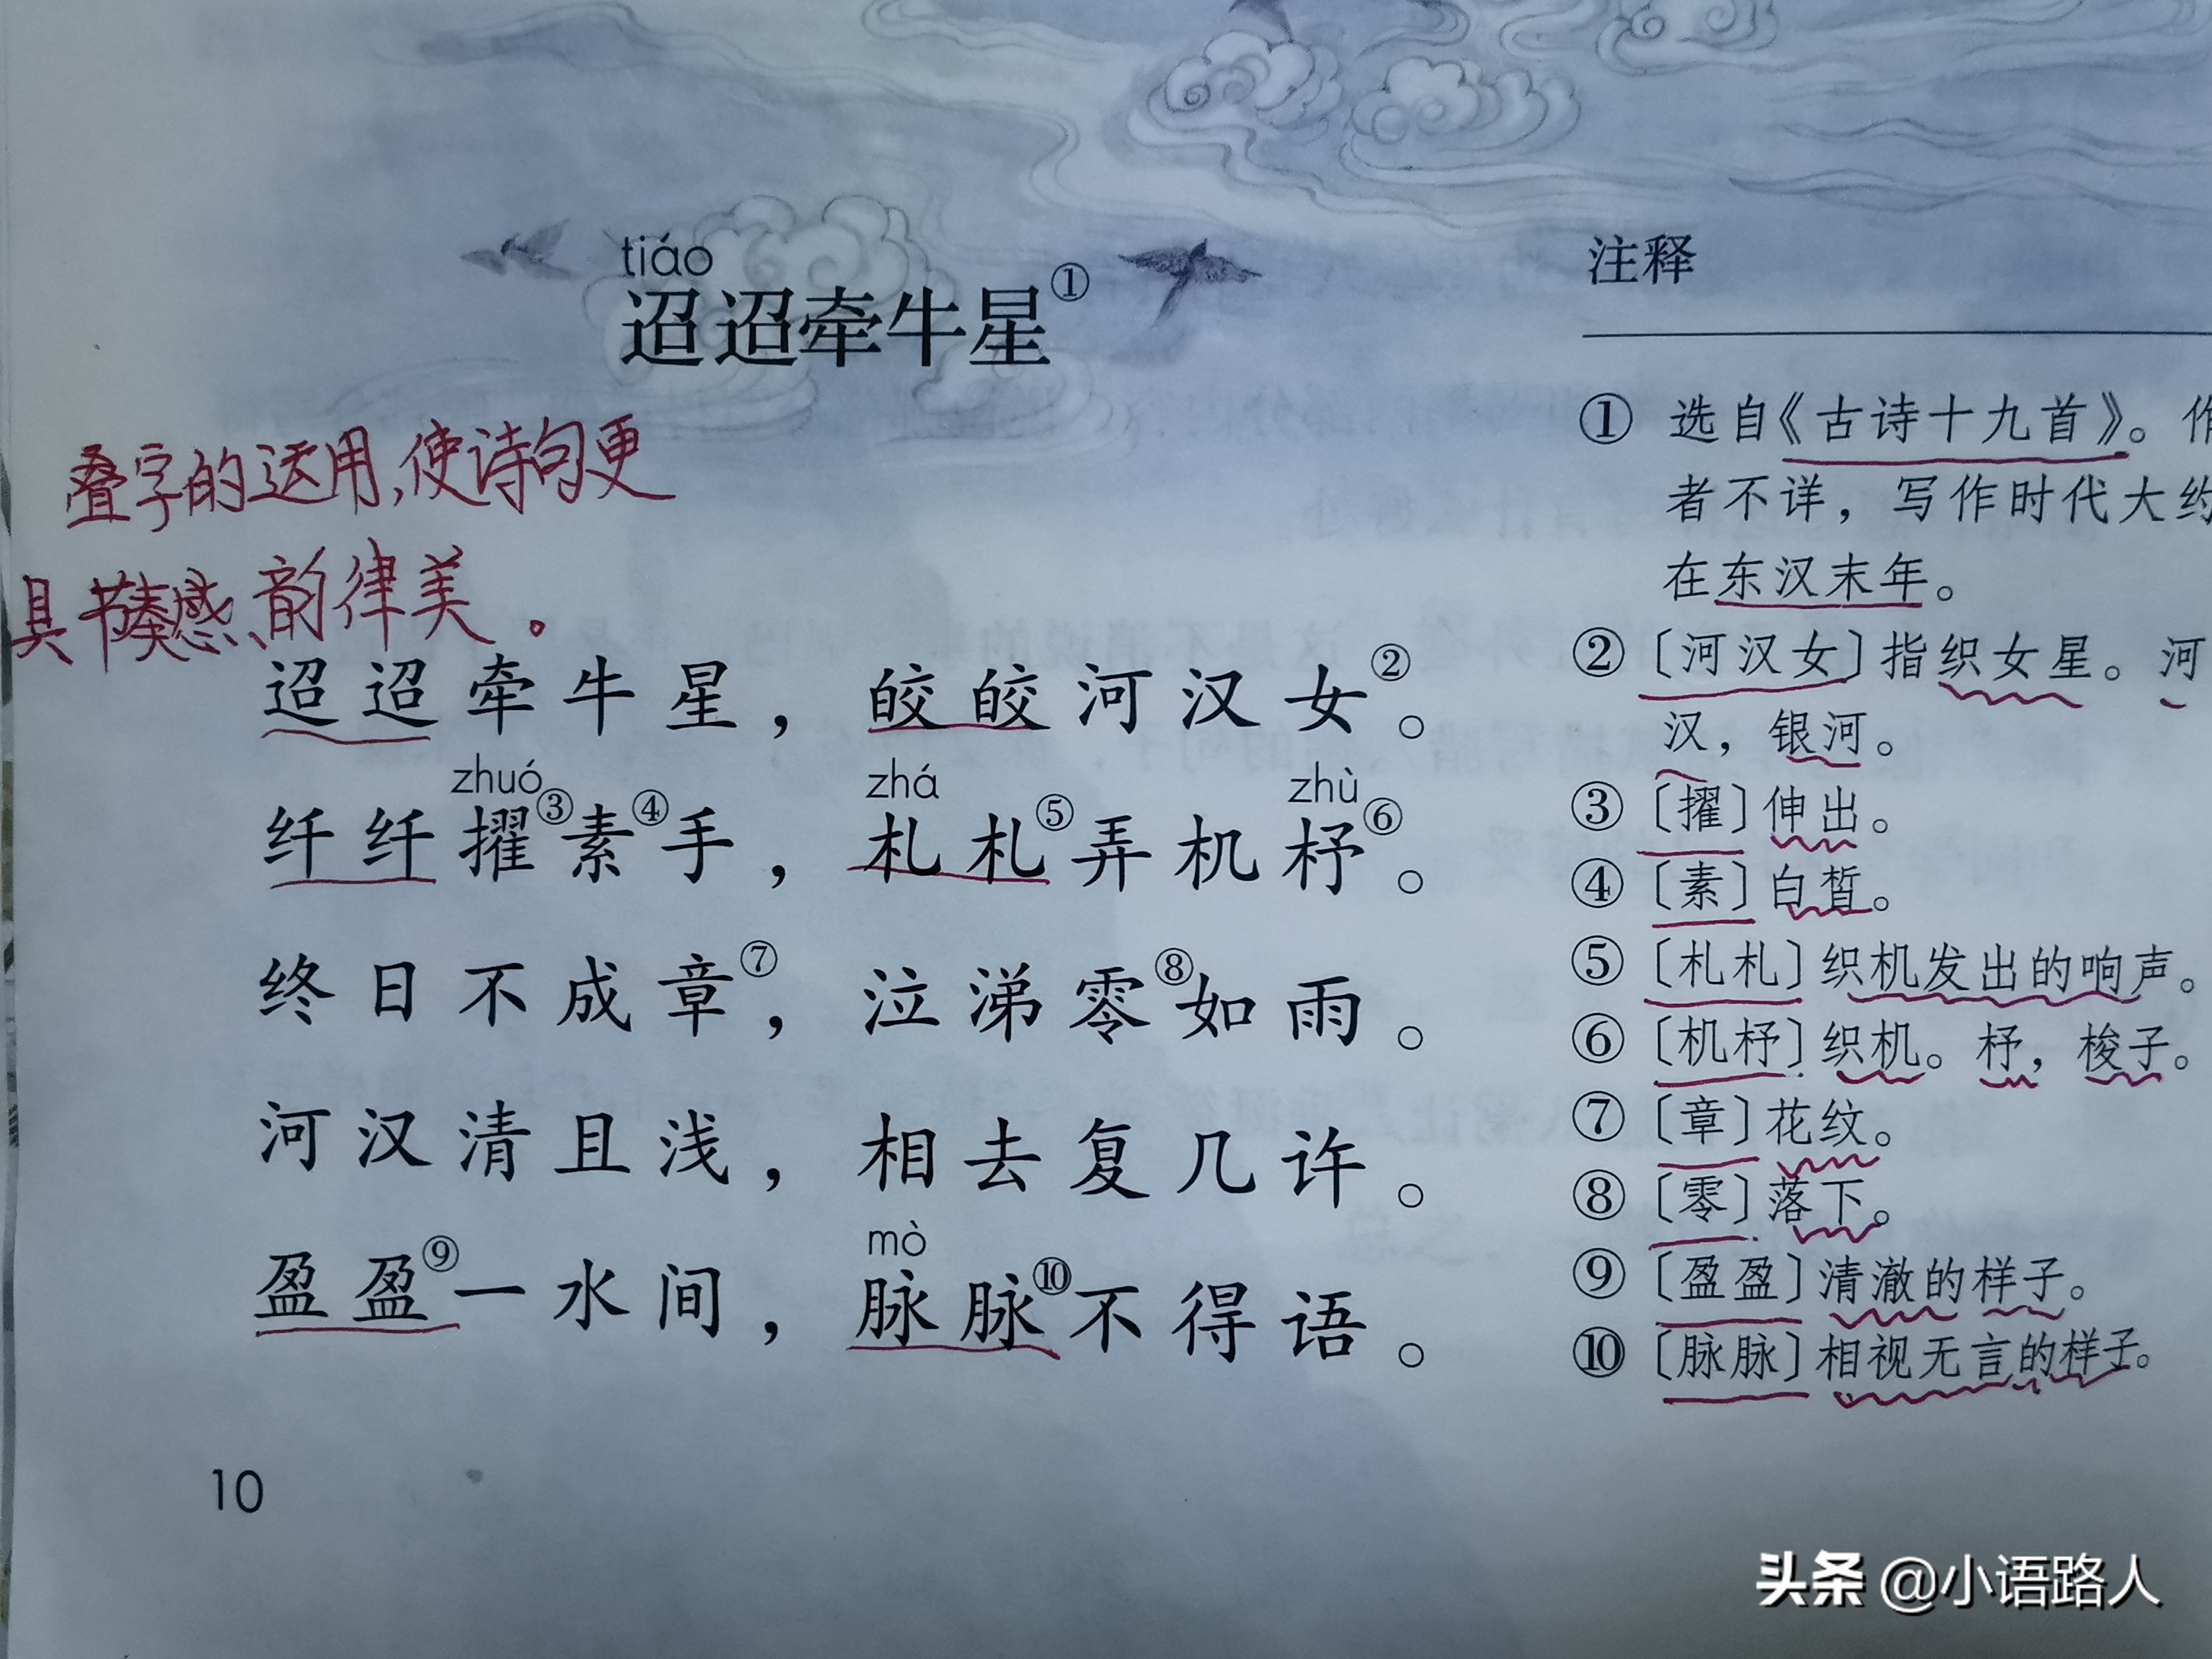 tiáo
迢迢牵牛星①
叠字的运用,使诗句更
具节奏感、韵律美。
迢迢牵牛星，皎皎河汉女②。
zhuó zhá zhù
纤纤擢③素④手，札札⑤弄机杼⑥。
终日不成章⑦，泣涕零⑧如雨。
河汉清且浅，相去复几许。
mò
盈盈⑨一水间，脉脉⑩不得语。
10
注释
①选自《古诗十九首》。作
者不详，写作时代大约
在东汉末年。
②〔河汉女〕指织女星。河
汉，银河。
③〔擢〕伸出。
④〔素〕白皙。
⑤〔札札〕织机发出的响声。
⑥〔机杼〕织机。杼，梭子。
⑦〔章〕花纹。
⑧〔零〕落下。
⑨〔盈盈〕清澈的样子。
⑩〔脉脉〕相视无言的样子。
头条 @小语路人